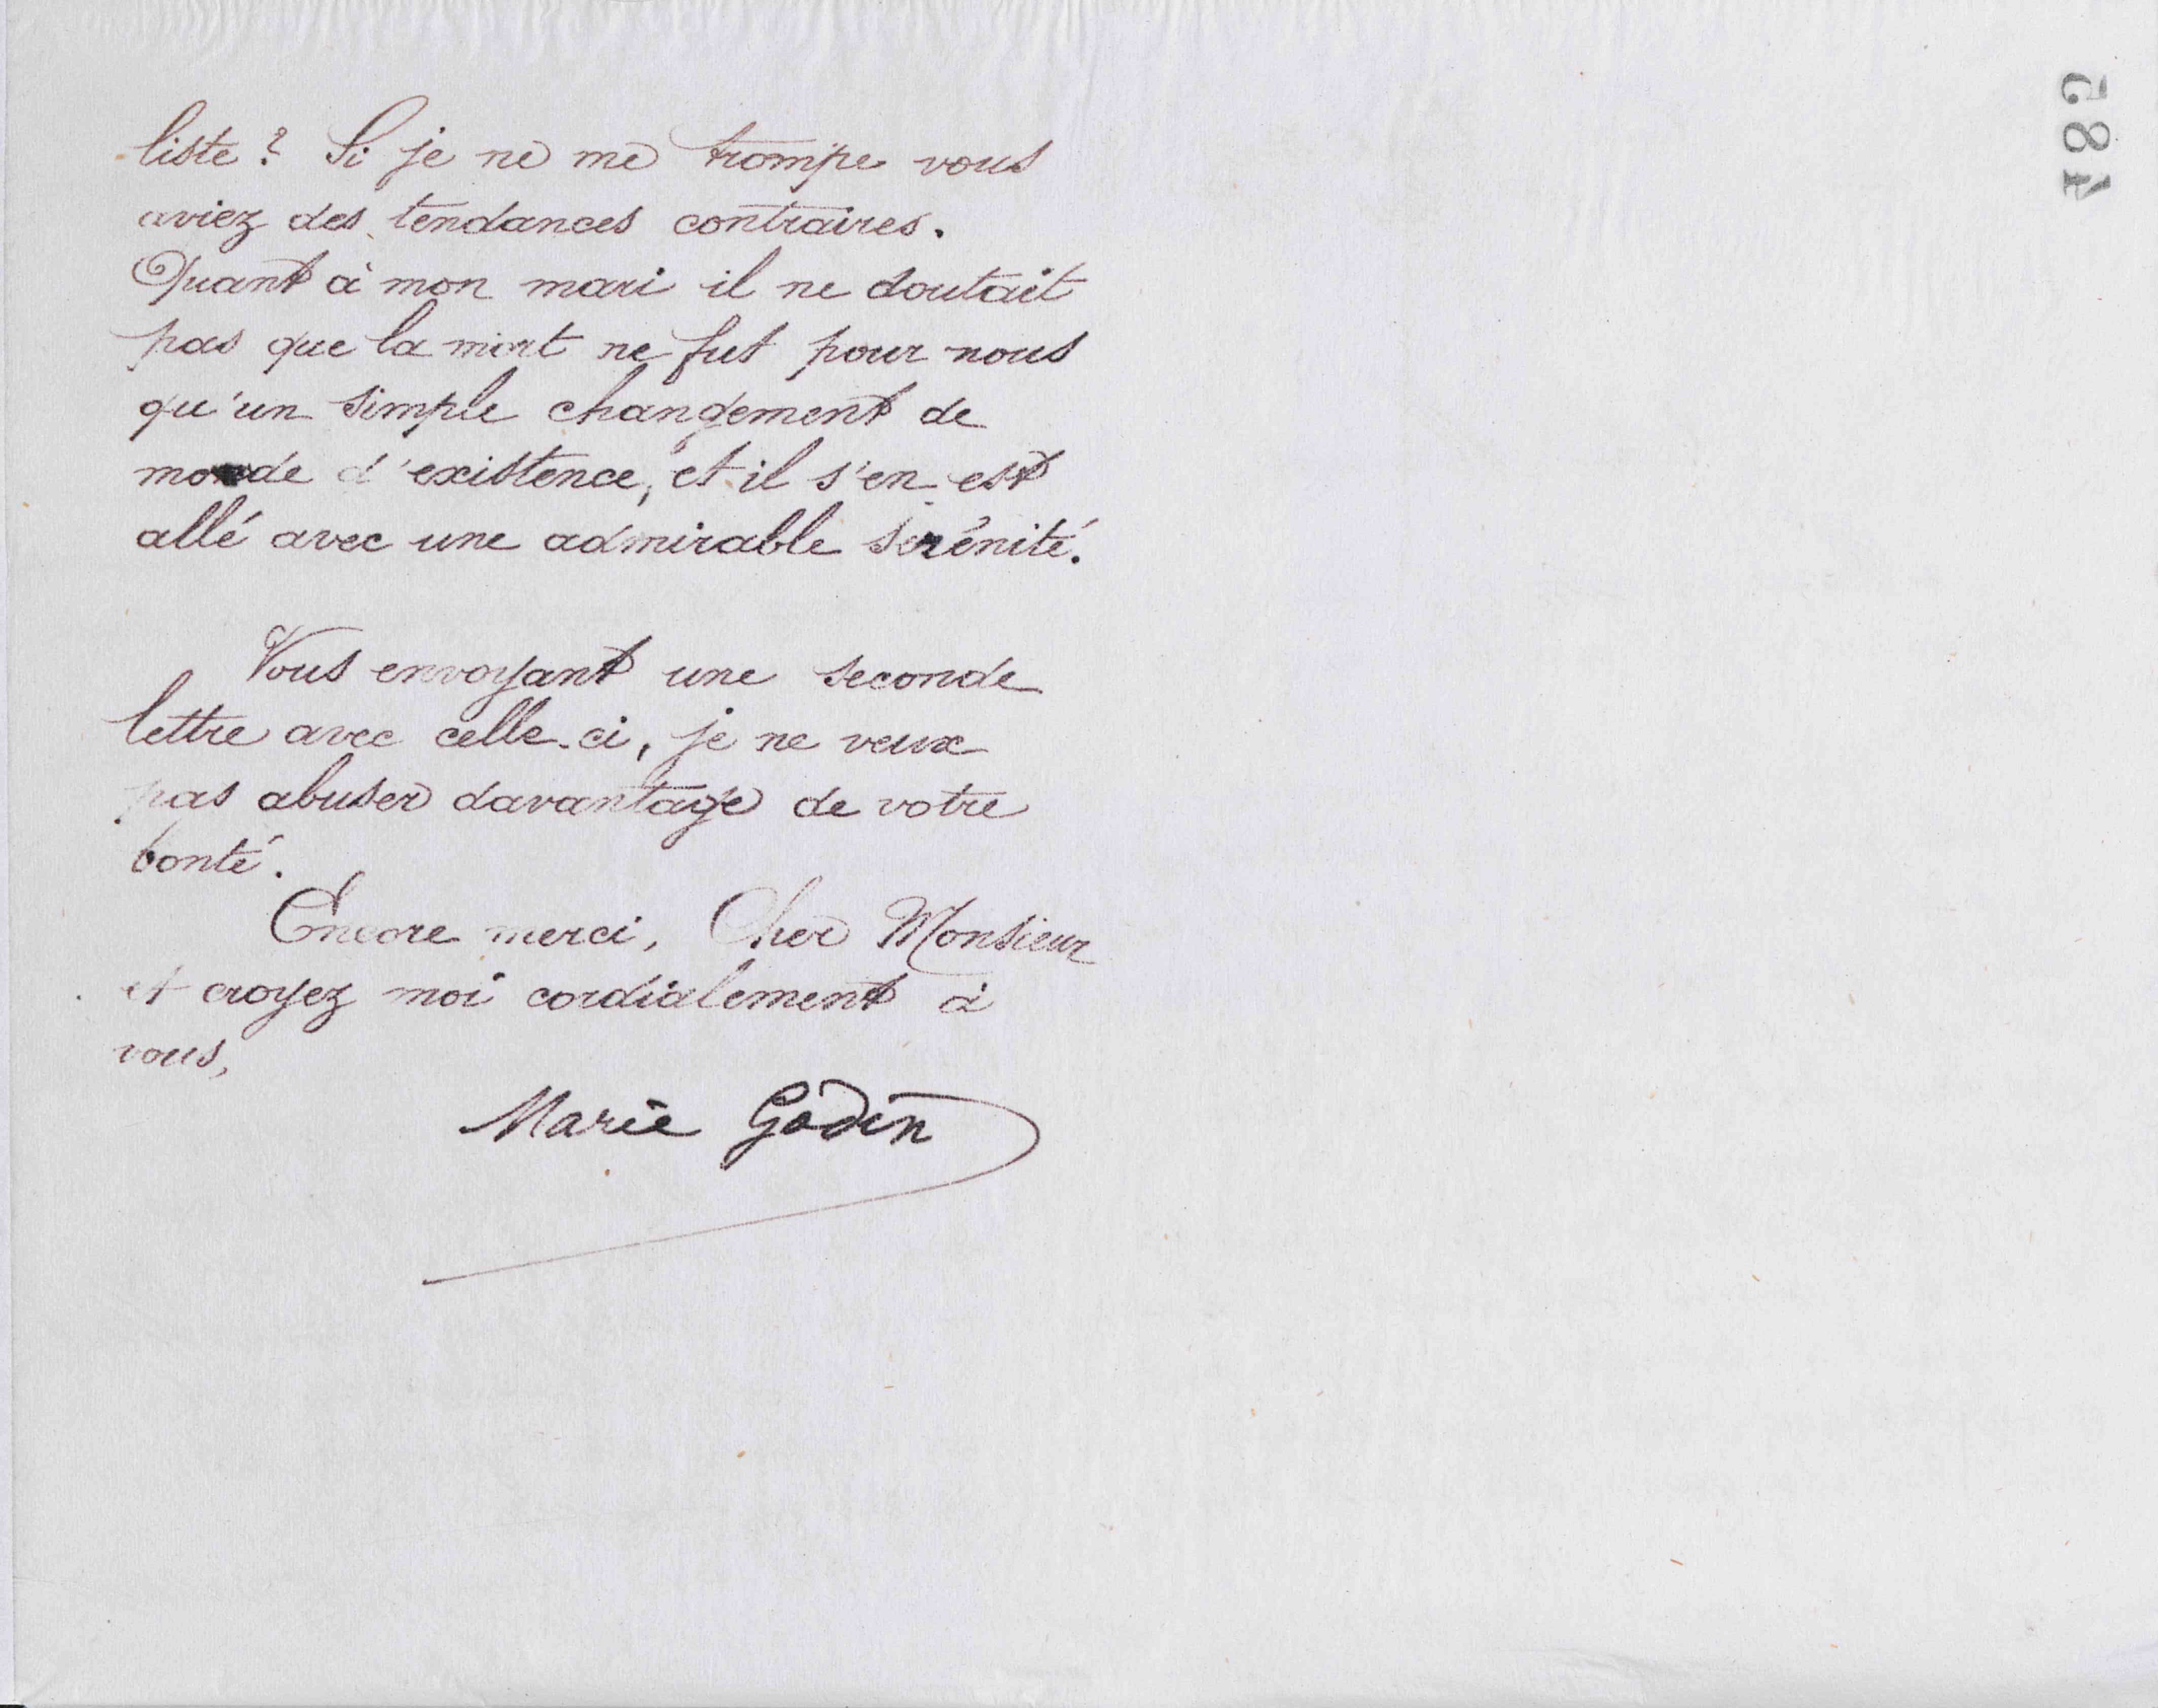 liste ? Si je ne me trompe vous
aviez des tendances contraires.
Quant à mon mari il ne doutait
pas que la mort ne fut pour nous
qu'un simple changement de
mode d'existence, et il s'en est
allé avec une admirable sérénité.
Vous envoyant une seconde
lettre avec celle-ci, je ne veux
pas abuser davantage de votre
bonté.
Encore merci, Cher Monsieur
et croyez moi cordialement à
vous,
Marie Godin
485